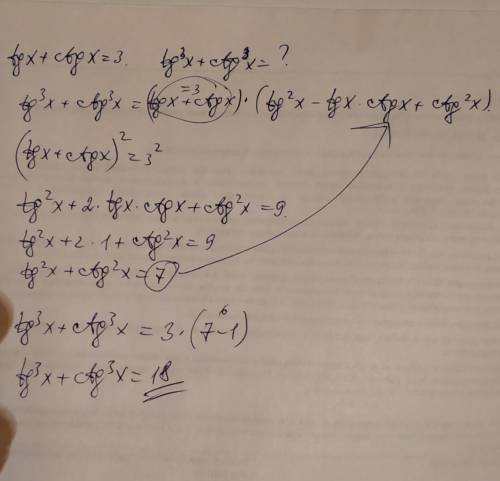 tgx + ctgx = 3. tg³x + ctg³x = ?
tg³x + ctg³x = (tgx + ctgx) · (tg²x - tgx · ctgx + ctg²x).
= 3
(tgx + ctgx)² = 3²
tg²x + 2 · tgx · ctgx + ctg²x = 9.
tg²x + 2 · 1 + ctg²x = 9
tg²x + ctg²x = 7
6
tg³x + ctg³x = 3 · (7 - 1)
tg³x + ctg³x = 18